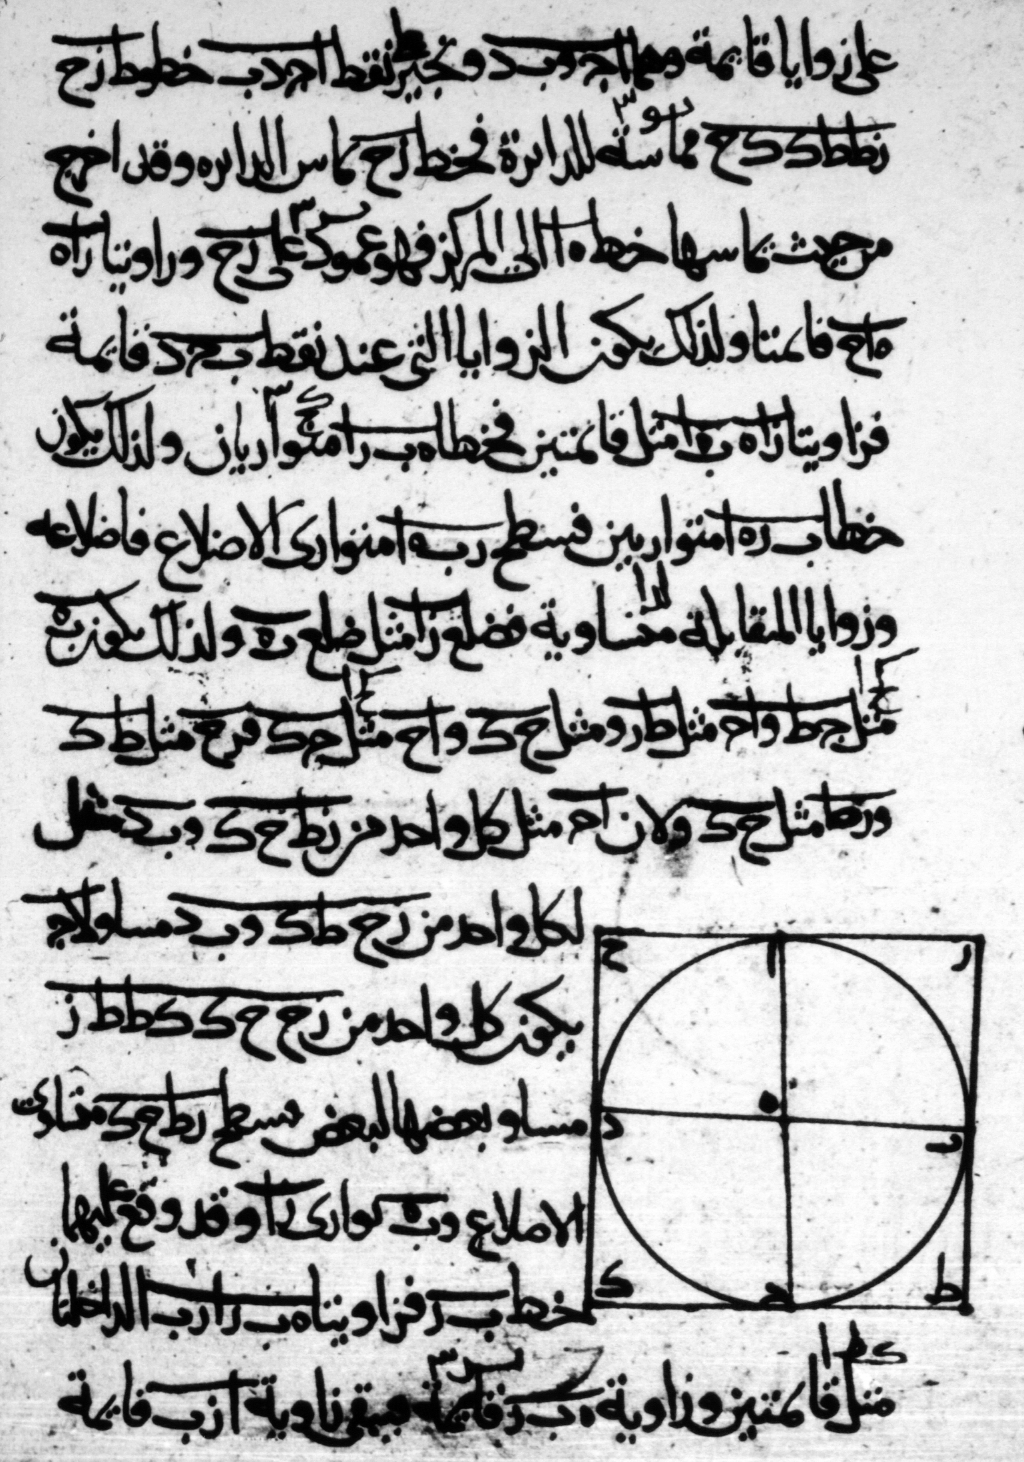 على زوايا قايمة وهما اجـ وب د ونجيز نقط اجـ دب خطوط زح
زط طك كح مماسة للدايرة فخط زح يماس الدايره وقد اخرج
من حيث يماسها خط ه ا الى المركز فهو عمود على زح وزاويتا زاه
ه اح قايمتا ولذلك يكون الزوايا التي عند نقط ب جـ د قايمة
فزاويتا زاه ب ه ا مثل قايمتين فخطا ه ب زا متوازيان ولذلك يكون
خطا ب ز ه ا متوازيين فسطح ز ب ه ا متوازى الاضلاع فاضلاعه
وزواياا المتقابلة متساوية فضلع زا مثل ضلع ب ه ولذلك يكون ب ه
مثل جـ ط واجـ مثل طز ومثل ح ك واح مثل جـ ك فزح مثل طك
وزط مثل ح ك ولان اجـ مثل كل واحد من زط ح ك وب د مثل
لكل واحد من زح طك وب د مساو لاجـ
يكون كل واحد من زح ح ك كط ط ز
مساو بعضها لبعض فسطح زط ح ك متساوى
الاضلاع وب ه يوازى زا وقد وقع عليهما
خط ب ز فزاويتا ه ب ز ا ز ب الداخلتان
مثل قايمتين وزاوية ه ب ز قايمة فيبقى زاوية ا ز ب قايمة
ح ا ز
ه
د ب
ك جـ ط